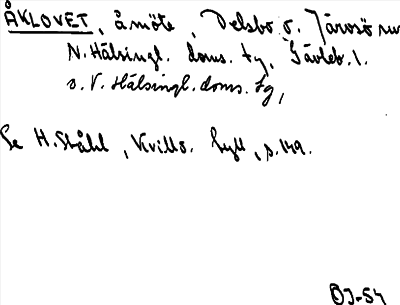 ÅKLOVET, åmöte, Delsbo o. Järvsö snr
N. Hälsingl. doms. tg, Gävleb. l.
o. V. Hälsingl. doms. tg,
Se H. Ståhl, Kvill o. , s. 149.
OJ-54